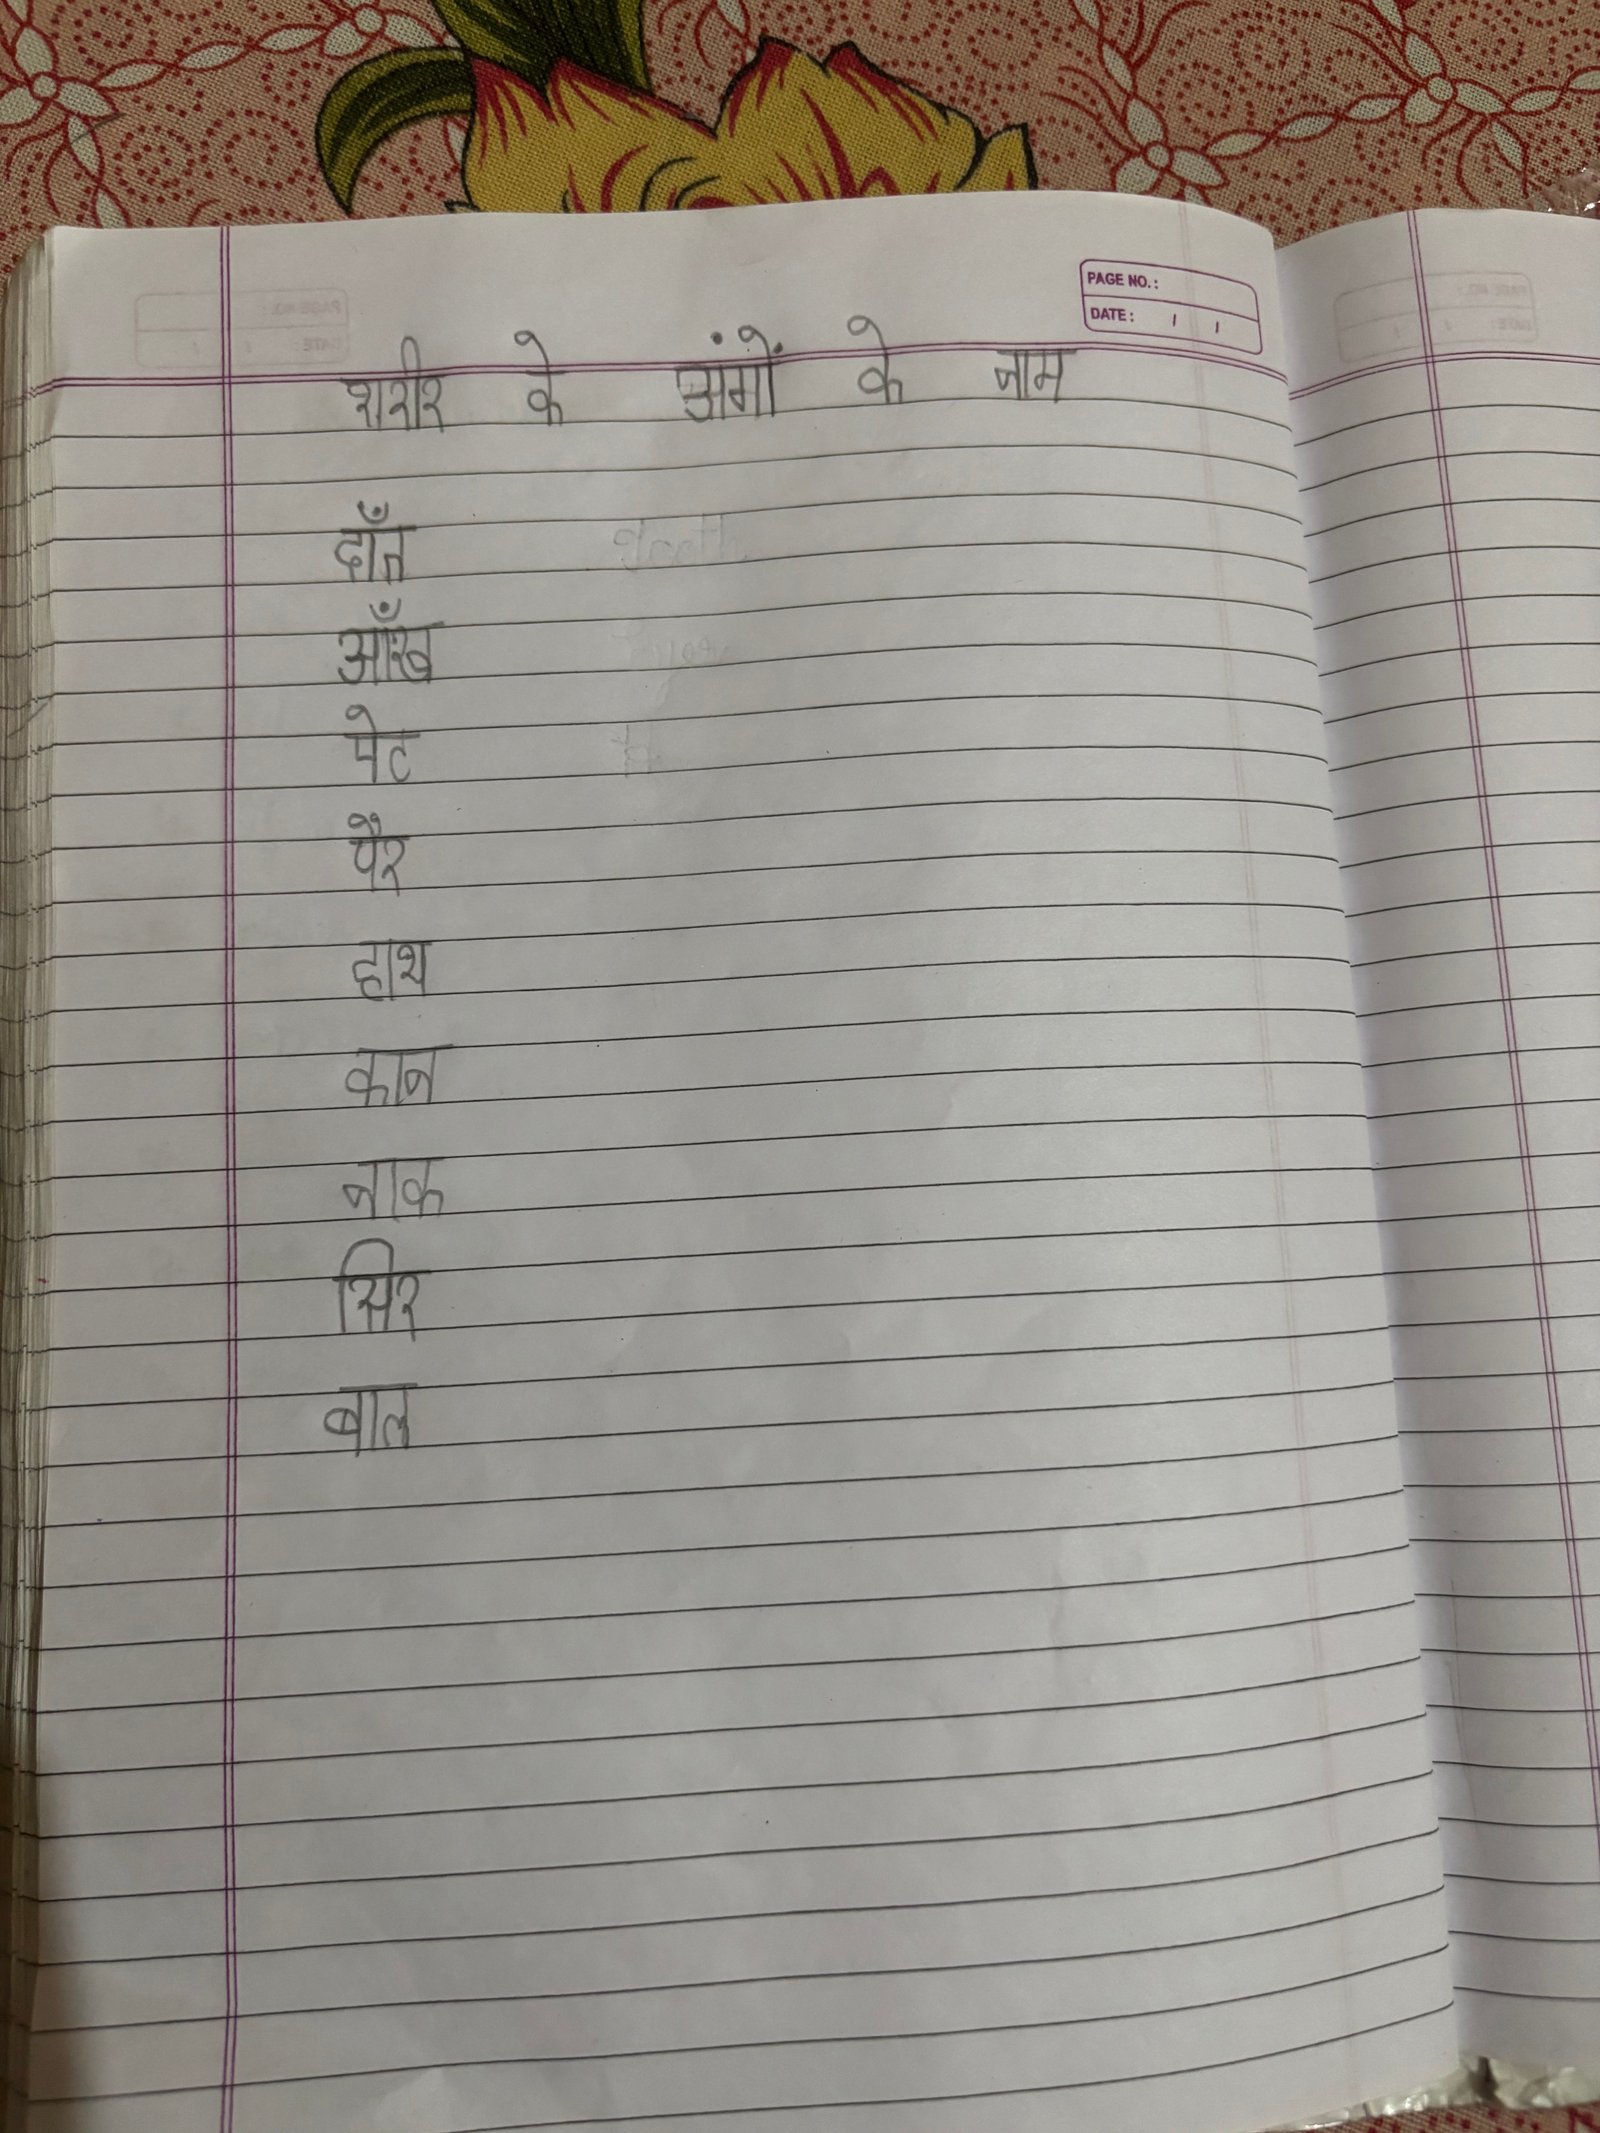 PAGE NO.:
DATE: / /
शरीर के अंगों के नाम
दाँत
आँख
पेट
पैर
हाथ
कान
नाक
सिर
बाल